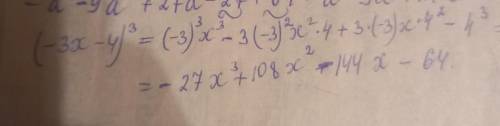 (-3x-4)³ = (-3)³x³ - 3(-3)²x²·4 + 3·(-3)x·4² - 4³ =
= -27x³ + 108x² - 144x - 64.